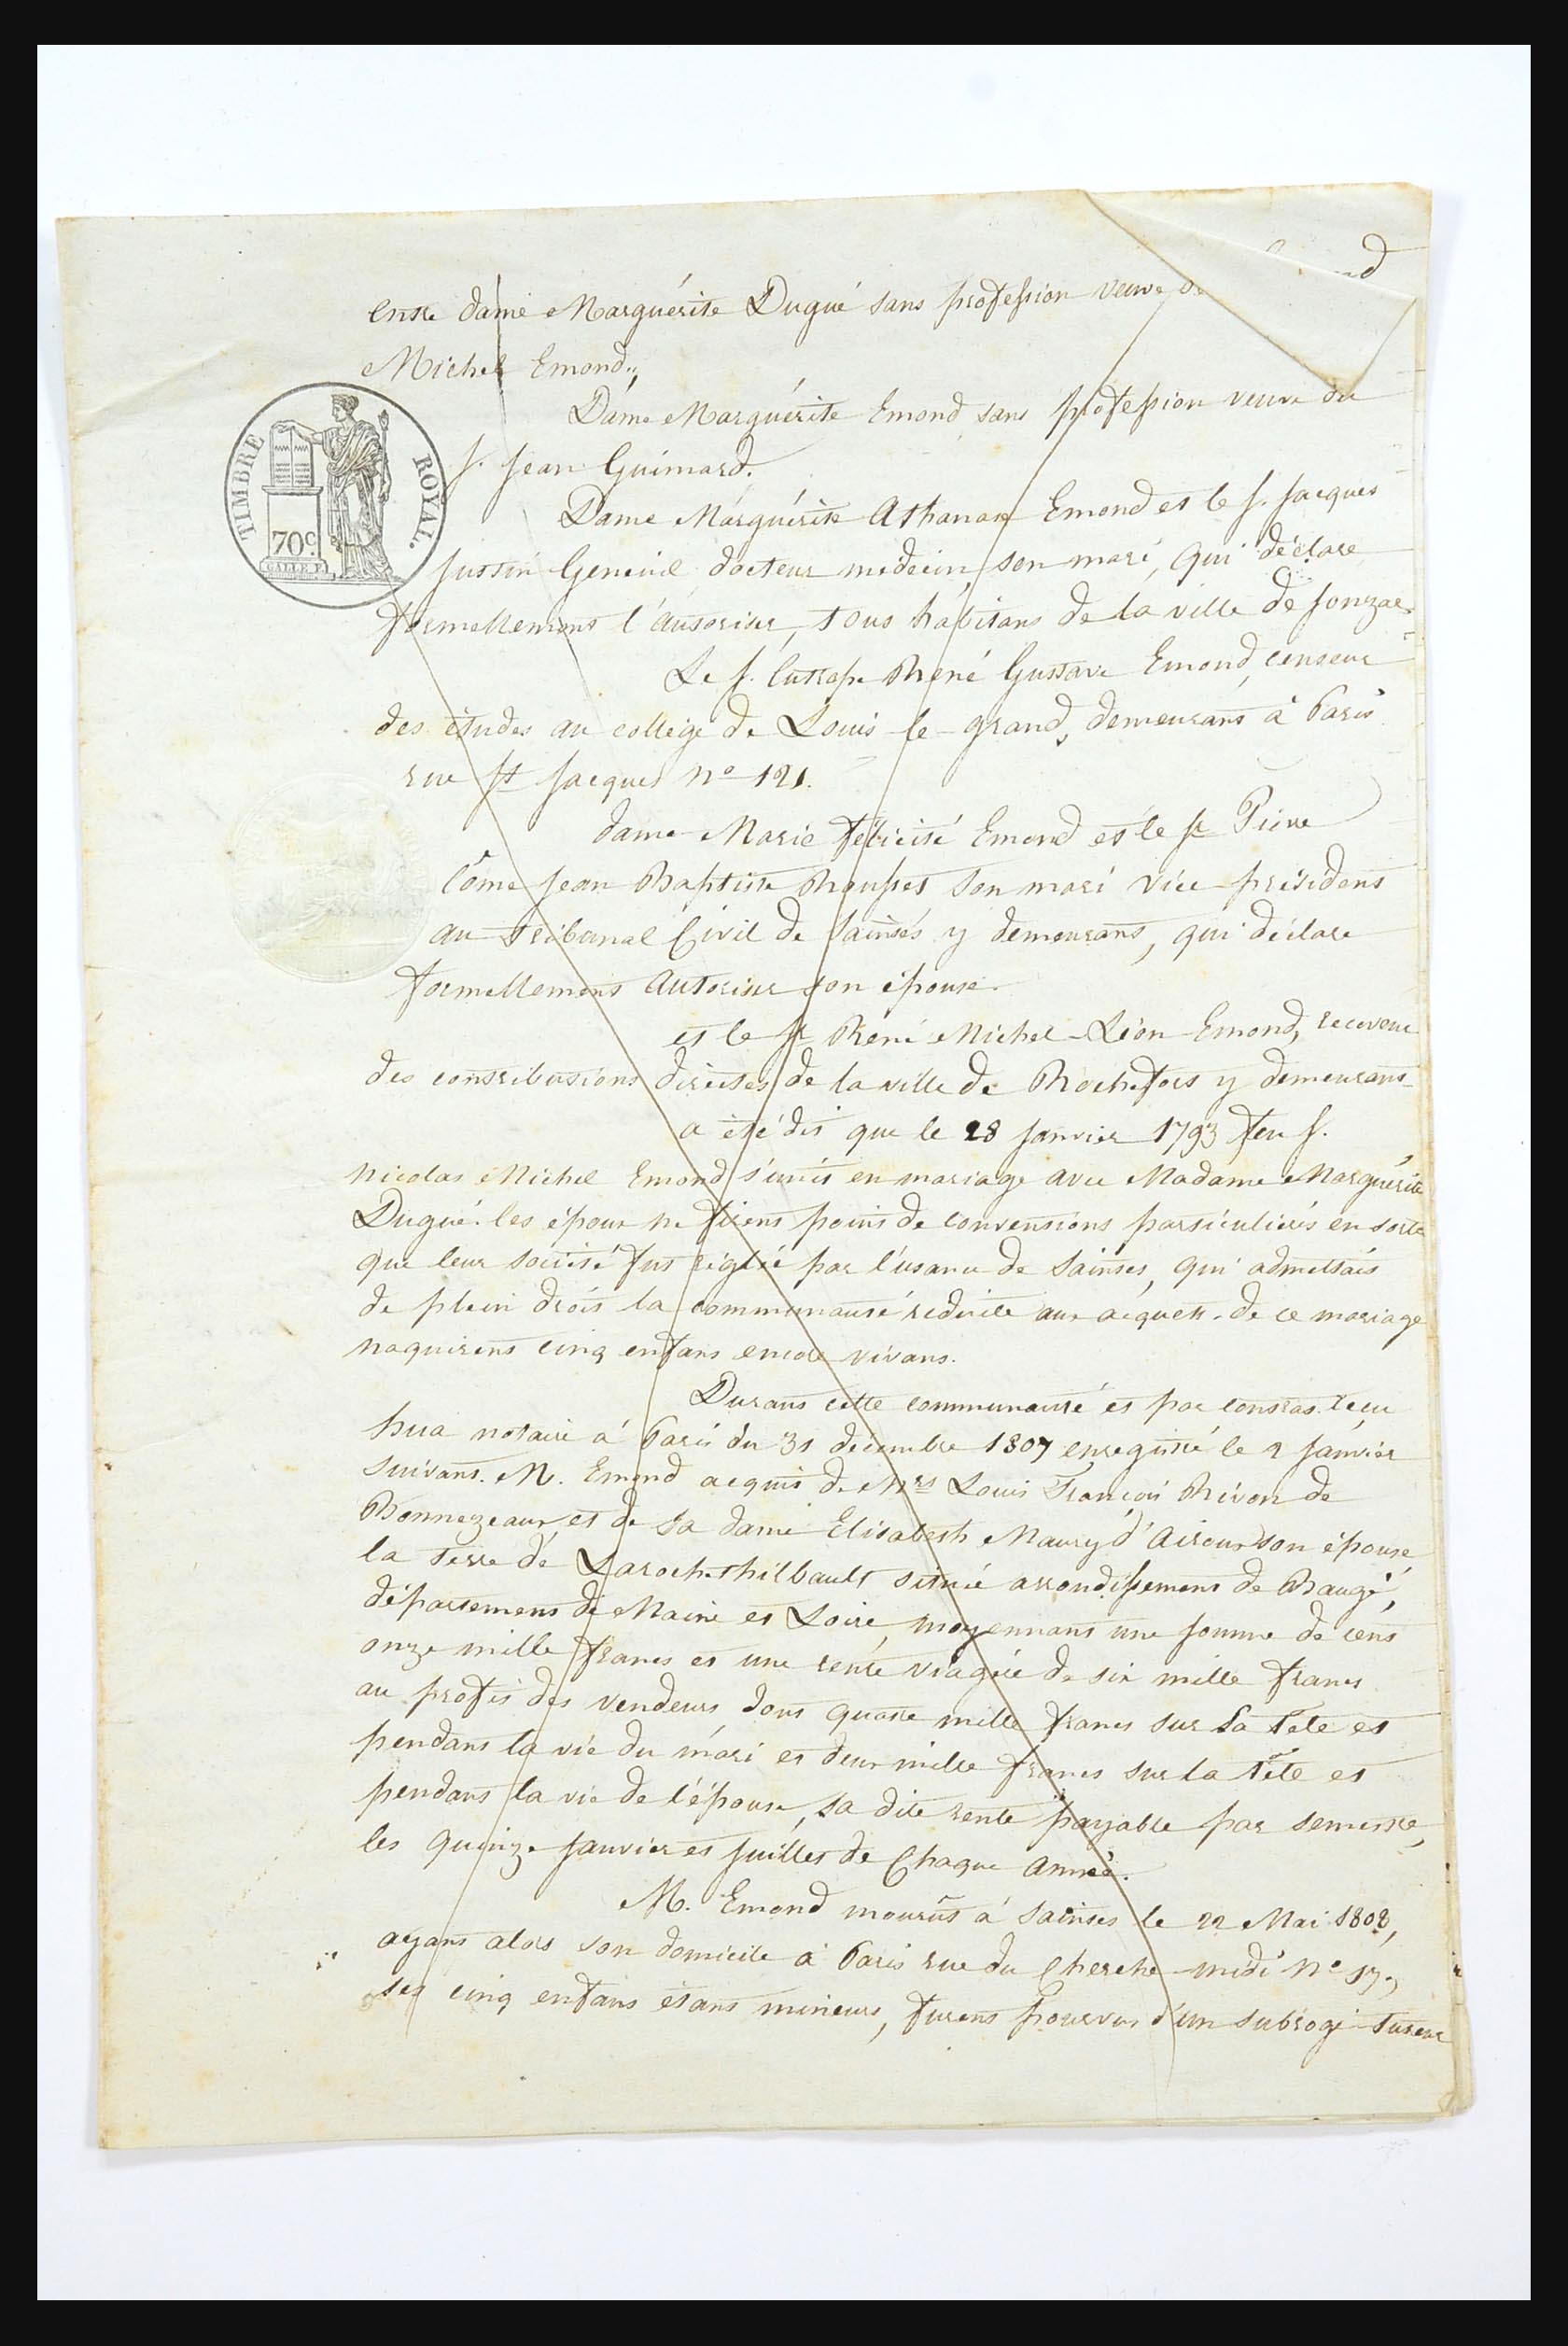 Entre dame Marguérite Dugué sans profession veuve
Michel Emond,
Dame Marguérite Emond sans profession veuve du
S. Jean Guimard.
Dame Marguérite Athanase Emond et le S. Jacques
Justin Geneuil docteur médecin son mari, qui déclare
formellement l'autoriser, tous habitans de la ville de Jonzac.
TIMBRE ROYAL.
70c
Le S. Eutrope René Gustave Emond, censeur
des études au collège de Louis-le-grand, demeurant à Paris
rue St Jacques No 121.
dame Marie félicité Emond et le Sr Pierre
Côme Jean Baptiste Rousset son mari vice-président
au tribunal Civil de Saintes y demeurant, qui déclare
formellement autoriser son épouse.
et le Sr René Michel-Léon Emond, receveur
des contributions directes de la ville de Rochefort y demeurant
a été dit que le 28 janvier 1793 feu S.
Nicolas Michel Emond s'unit en mariage avec Madame Marguérite
Dugué. les époux ne firent point de conventions particulières en sorte
que leur société fut réglée par l'usance de Saintes, qui admettait
de plein droit la communauté réduite aux acquets. de ce mariage
naquirent cinq enfans encore vivans.
Durant cette communauté et par contrat reçu
hua notaire à Paris du 31 décembre 1807 enregistré le 2 janvier
suivant. M. Emond acquit de Mrs Louis François de
Bonnezeaux et de sa dame Elisabeth Maury son épouse
la terre de Larochethilbault située arrondissement de Baugé,
département de Maine et Loire, moyennant une somme de cent
onze mille francs et une rente viagère de six mille francs
au profit des vendeurs dont quatre mille francs sur la tête et
pendant la vie du mari et deux mille francs sur la tête et
pendant la vie de l'épouse, la dite rente payable par semestre,
les quinze Janvier et Juillet de Chaque année.
M. Emond mourût à Saintes le 22 Mai 1808,
ayant alors son domicile à Paris rue du Cherche-midi No 17,
ses cinq enfans étant mineurs, furent pourvus d'un subrogé-tuteur